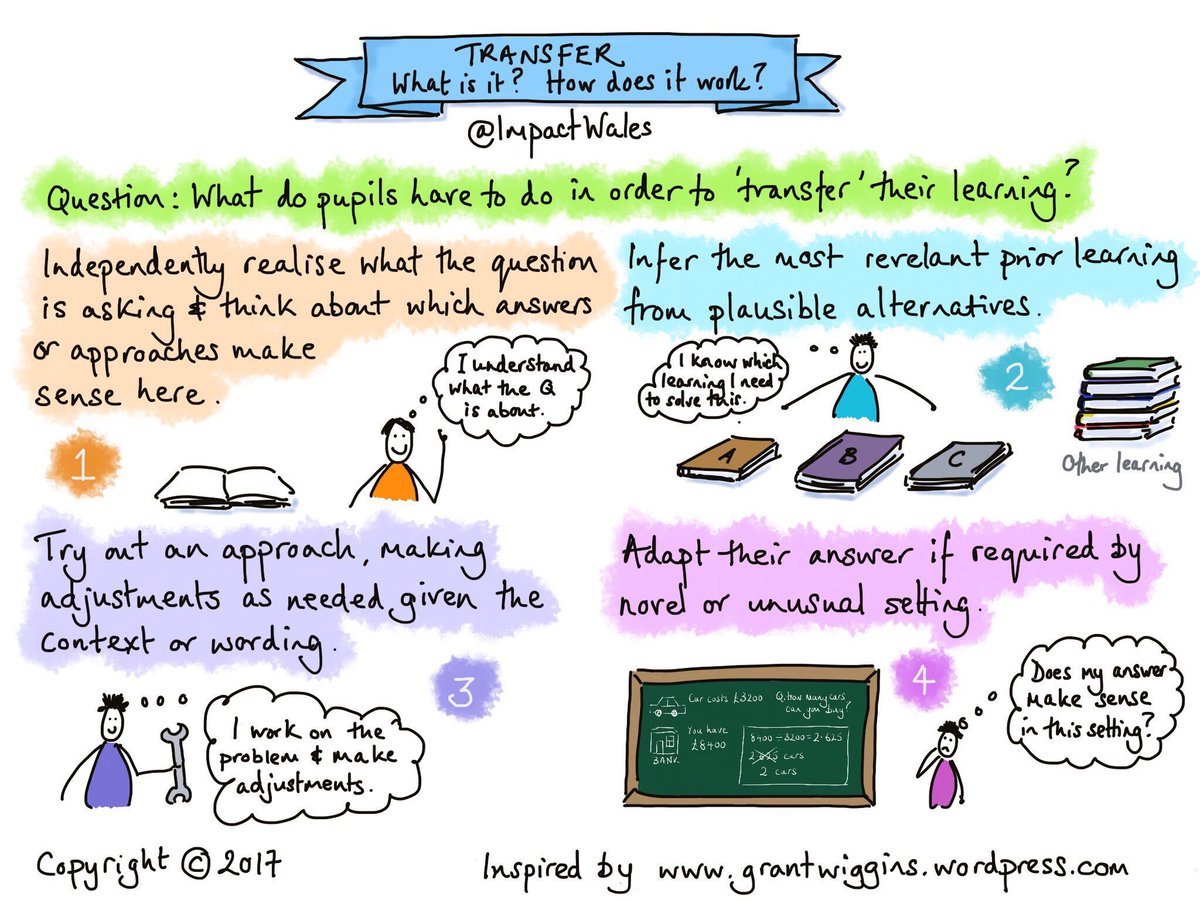 TRANSFER
What is it? How does it work?
@ImpactWales
Question: What do pupils have to do in order to 'transfer' their learning?
Independently realise what the question
is asking & think about which answers
or approaches make
sense here.
I understand
what the Q
is about.
1
Infer the most revelant prior learning
from plausible alternatives.
I know which
learning I need
to solve this.
2
A
B
C
Other learning
Try out an approach, making
adjustments as needed, given the
context or wording.
3
I work on the
problem & make
adjustments.
Adapt their answer if required by
novel or unusual setting.
4
Car costs £3200
Q. How many cars
can you buy?
You have
£8400
BANK
8400 ÷ 3200 = 2.625
2.625 cars
2 cars
Does my answer
make sense
in this setting?
Copyright © 2017
Inspired by www.grantwiggins.wordpress.com